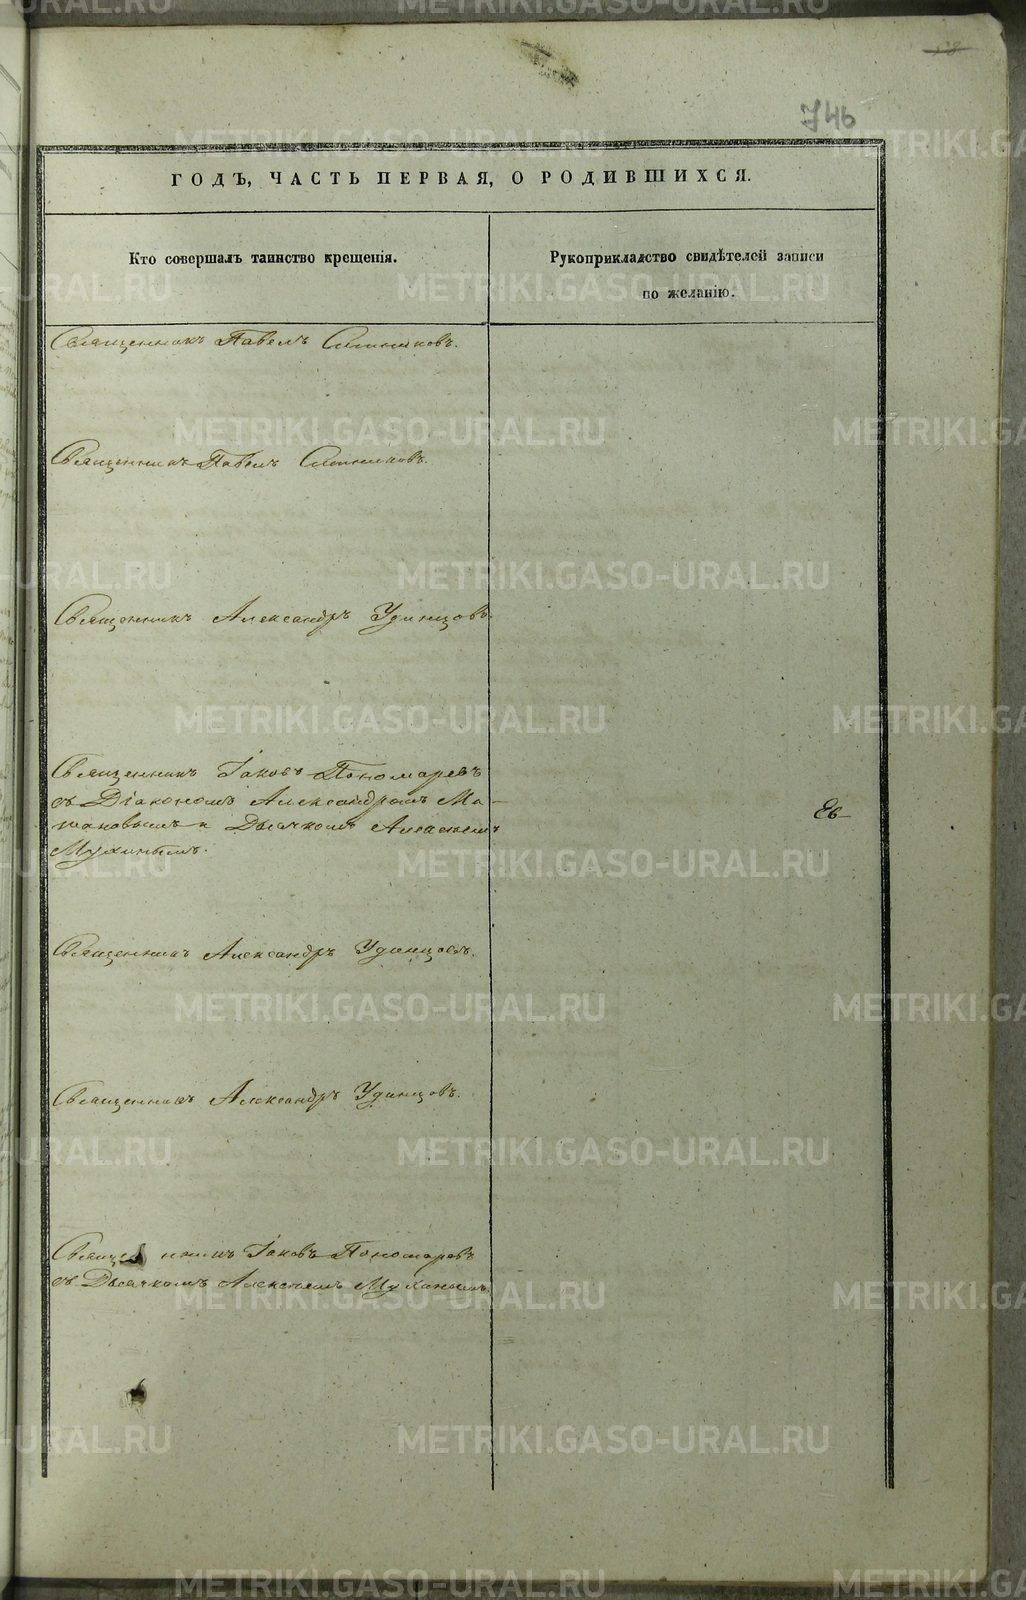 746
ГОДЪ, ЧАСТЬ ПЕРВАЯ, О РОДИВШИХСЯ.
Кто совершалъ таинство крещенія.
Рукоприкладство свидѣтелей записи
по желанію.
Священникъ Павелъ Ситниковъ.
Священникъ Павелъ Ситниковъ.
Священникъ Александръ Удинцовъ.
Священникъ Іаковъ Пономаревъ
съ Діакономъ Александромъ
и Дьячкомъ Алексѣемъ
Мухинымъ.
Священникъ Александръ Удинцовъ.
Священникъ Александръ Удинцовъ.
Священникъ Іаковъ Пономаревъ
съ Дьячкомъ Алексѣемъ Мухинымъ.
METRIKI.GASO-URAL.RU